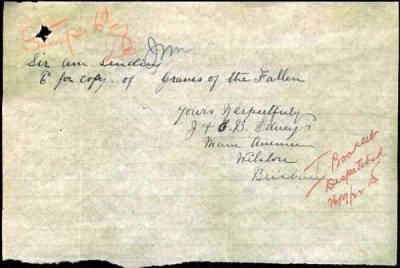 Stamps 6d
Sir am sending
6d for copy of Graves of the Fallen
Yours Respectfully
J & E. B.
Main Avenue
Wilston
Brisbane
1 Booklet
Dispatched